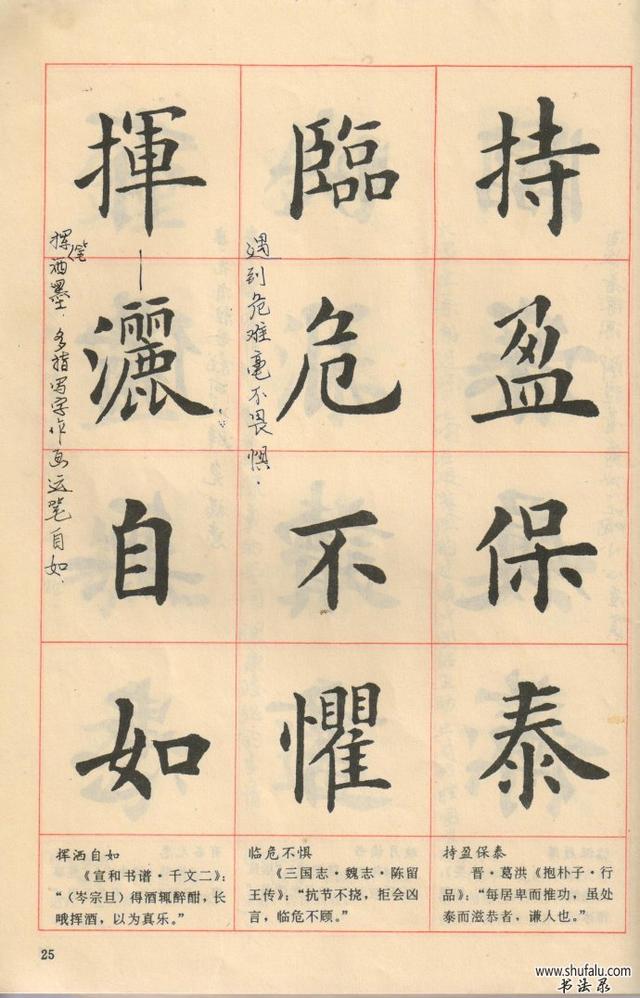 持盈保泰
臨危不懼
揮灑自如
遇到危难毫不畏惧.
挥笔洒墨.多指写字作画运笔自如.
持盈保泰
晋·葛洪《抱朴子·行
品》：“每居卑而推功，虽处
泰而滋恭者，谦人也。”
临危不惧
《三国志·魏志·陈留
王传》：“抗节不挠，拒会凶
言，临危不顾。”
挥洒自如
《宣和书谱·千文二》：
“（岑宗旦）得酒辄醉酣，长
哦挥洒，以为真乐。”
25
www.shufalu.com
书法录